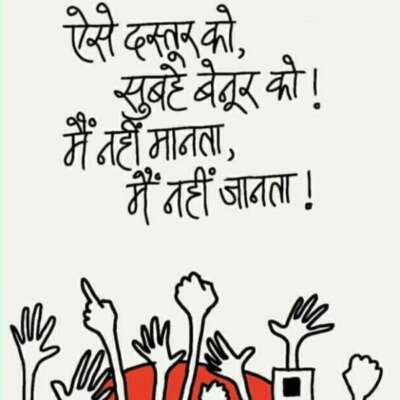 ऐसे दस्तूर को,
सुबहे बेनूर को!
मैं नहीं मानता,
मैं नहीं जानता!